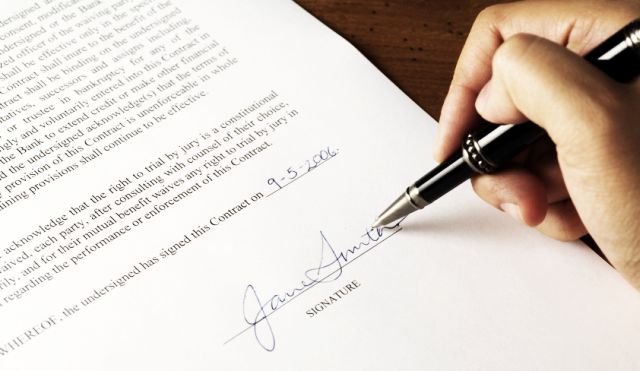 undersigned and
consent, modification
undersigned or the Bank
officer of the waiving party
shall be effective only in the
Contract shall inure to the benefit of the
shall be binding on the undersigned
successors and assigns including,
or trustee in bankruptcy for any of the
and voluntarily entered into this Contract in
the Bank to extend credit or make other financial
the undersigned acknowledge(s) that the terms of
provision of this Contract is unenforceable in whole
provisions shall continue to be effective.
acknowledge that the right to trial by jury is a constitutional
each party, after consulting with counsel of their choice,
and for their mutual benefit waives any right to trial by jury in
regarding the performance or enforcement of this Contract.
WHEREOF, the undersigned has signed this Contract on 9-5-2006.
Jane Smith
SIGNATURE